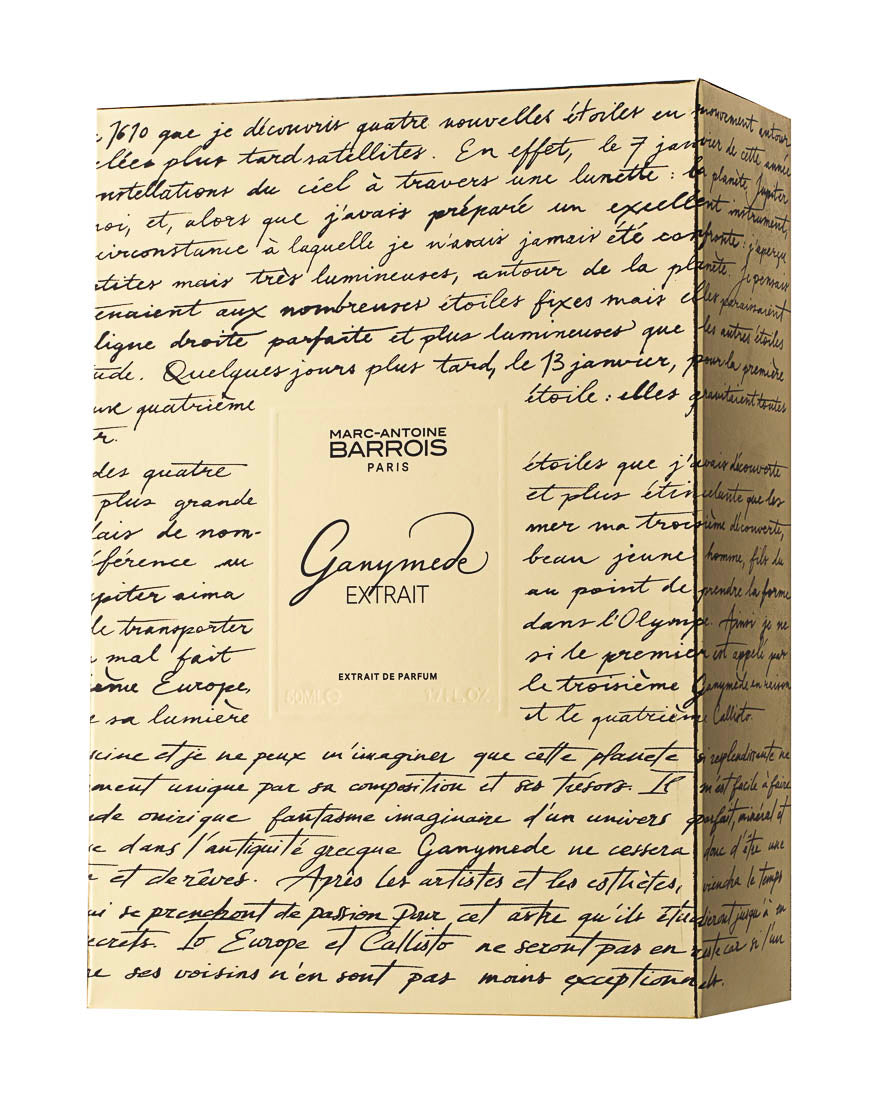 1610 que je découvris quatre nouvelles étoiles en mouvement autour
plus tard satellites. En effet, le 7 janvier de cette année
du ciel à travers une lunette : la planète Jupiter
et, alors que j'avais préparé un excellent instrument,
circonstance à laquelle je n'avais jamais été confronté : j'aperçu
mais très lumineuses, autour de la planète. Je pensais
aux nombreuses étoiles fixes mais elles paraissaient
ligne droite parfaite et plus lumineuses que les autres étoiles
Quelques jours plus tard, le 13 janvier, pour la première
quatrième étoile : elles gravitaient toutes
MARC-ANTOINE
BARROIS
PARIS
Ganymede
EXTRAIT
EXTRAIT DE PARFUM
des quatre étoiles que j'avais découverte
plus grande et plus étincelante que les
de nom- mer ma troisième découverte,
au beau jeune homme, fils du
aima au point de prendre la forme
le transporter dans l'Olympe. Ainsi je ne
mal fait si le premier est appelé par
Europe, le troisième Ganymede en raison
sa lumière et le quatrième Callisto.
et je ne peux m'imaginer que cette planete si resplendissante ne
unique par sa composition et ses trésors. Il m'est facile à faire
onirique fantasme imaginaire d'un univers parfait, minéral et
dans l'antiquité grecque Ganymede ne cessera donc d'être une
et de rêves. Après les artistes et les esthètes, viendra le temps
se prendront de passion pour cet astre qu'ils étudieront jusqu'à en
Io Europe et Callisto ne seront pas en reste car si l'un
ses voisins n'en sont pas moins exceptionnels.